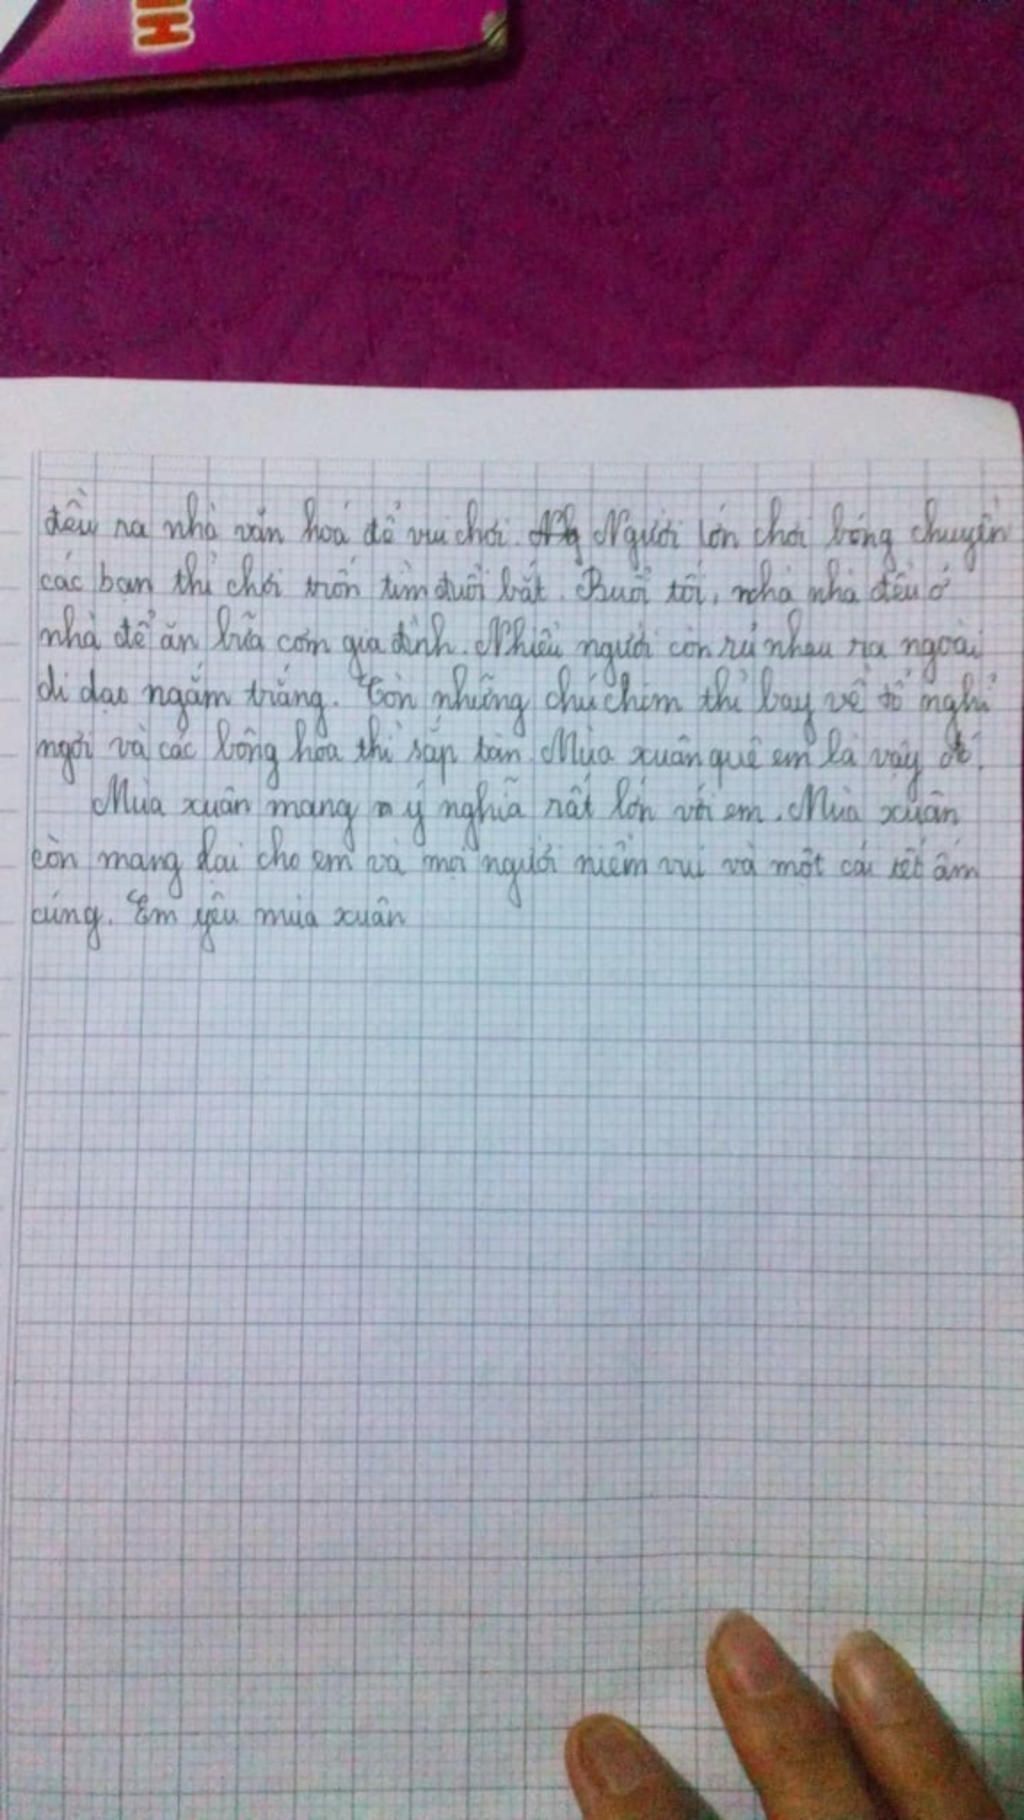 đều ra nhà văn hoá để vui chơi. Người lớn chơi bóng chuyền
các bạn thì chơi trốn tìm đuổi bắt. Buổi tối, nhà nhà đều ở
nhà để ăn bữa cơm gia đình. Nhiều người còn rủ nhau ra ngoài
đi dạo ngắm trăng. Còn những chú chim thì bay về tổ nghỉ
ngơi và các bông hoa thì sắp tàn. Mùa xuân quê em là vậy đó.
Mùa xuân mang ý nghĩa rất lớn với em. Mùa xuân
còn mang lại cho em và mọi người niềm vui và một cái tết ấm
cúng. Em yêu mùa xuân